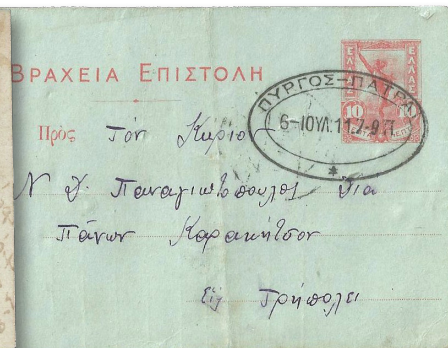 ΒΡΑΧΕΙΑ ΕΠΙΣΤΟΛΗ
ΕΛΛΑΣ ΕΛΛΑΣ
10 10
ΠΥΡΓΟΣ-ΠΑΤΡΑΙ
6-ΙΟΥΛ.11.7-9Π.
Πρὸς Τόν Κύριον
Ν Δ. Παναγιωτόπουλος δια
Πάνων Καρακήτσον
Εἰς Τρίπολι